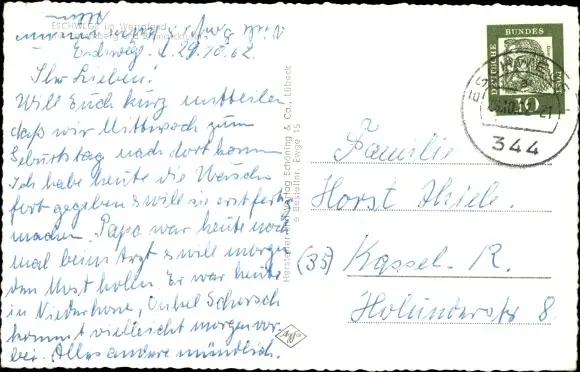 ESCHWEGE im Werraland
Eschwege, d. 29.10.62.
Ihr Lieben!
Will Euch kurz mitteilen
daß wir Mittwoch zum
Geburtstag nach dort komm
Ich habe heute die Wäsche
fort gegeben & will sie erst fertig
machen. Papa war heute noch
mal beim Arzt & will morgen
den Most hollen. Er war heute
in Niederhone, Onkel Schorsch
kommt vielleicht morgen vor
bei. Alles andere mündlich.
Hersteller und Verlag Schöning & Co., Lübeck
Bestellnr. Ewge 15
DEUTSCHE BUNDESPOST
10
344
Familie
Horst Thiele.
(35) Kassel. R.
Holunderstr 8.